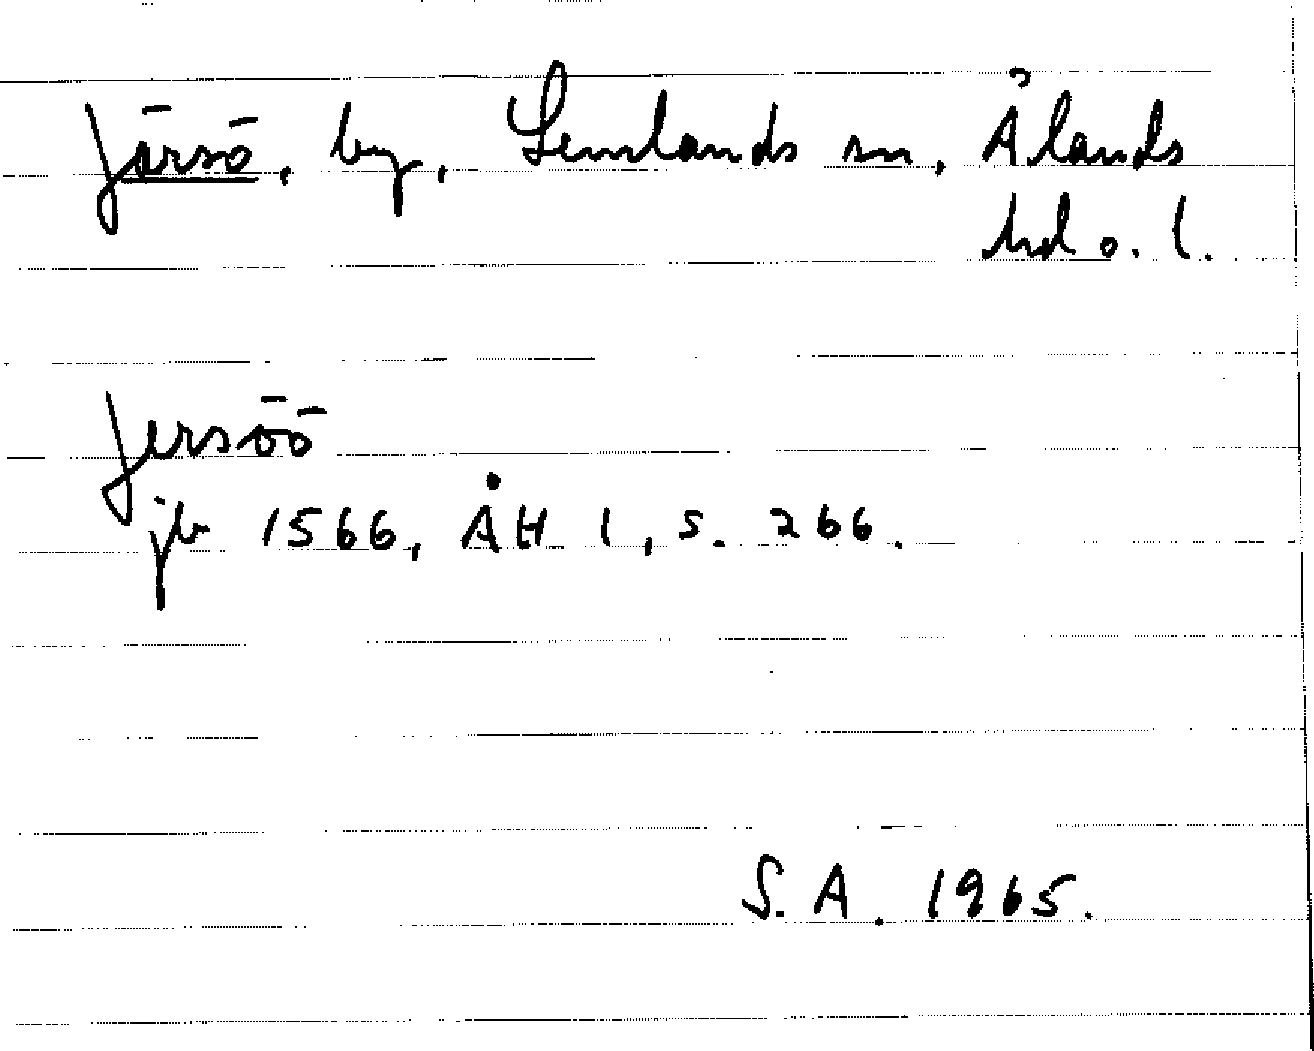 Järsö, by, Lemlands sn, Ålands
hd o. l.
Jersöö
jb 1566, ÅH 1, s. 266.
S. A. 1965.